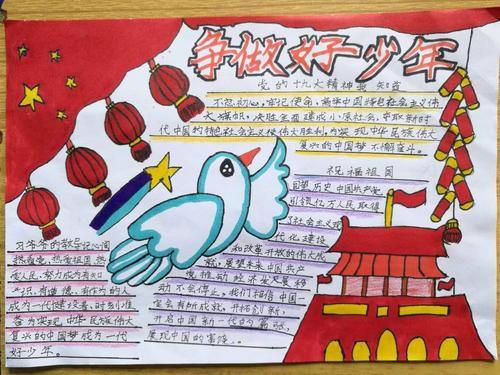 争做好少年
党的十九大精神要知道
不忘初心，牢记使命，高举中国特色社会主义伟
大旗帜，决胜全面建成小康社会，夺取新时
代中国特色社会主义伟大胜利，为实现中华民族伟大
复兴的中国梦不懈奋斗。
祝福祖国
回望历史 中国共产党
引领亿万人民取得
了社会主义现
代化建设
和改革开放的伟大成
就，展望未来 中国共产
党推动经济发展移
动不会停止，我们相信中国一
定会有加成就，开拓创新，
开启中国新一代的篇章，
展现中国的富饶。
习爷爷的教导记心间
热爱党，热爱祖国，热
爱人民，努力成为有知
识，有道德，有作为的人
成为一代建设者，时刻准
备为实现中华民族伟大
复兴的中国梦成为一代
好少年。